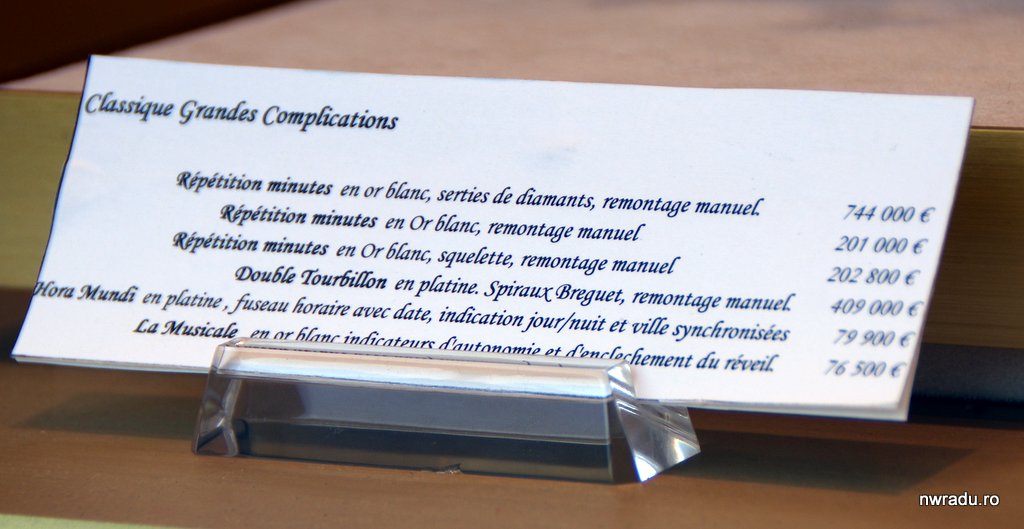 Classique Grandes Complications
Répétition minutes en or blanc, serties de diamants, remontage manuel. 744 000 €
Répétition minutes en Or blanc, remontage manuel 201 000 €
Répétition minutes en Or blanc, squelette, remontage manuel 202 800 €
Double Tourbillon en platine. Spiraux Breguet, remontage manuel. 409 000 €
Hora Mundi en platine , fuseau horaire avec date, indication jour/nuit et ville synchronisées 79 900 €
La Musicale en or blanc indicateurs d'autonomie et d'enclechement du réveil. 76 500 €
nwradu.ro